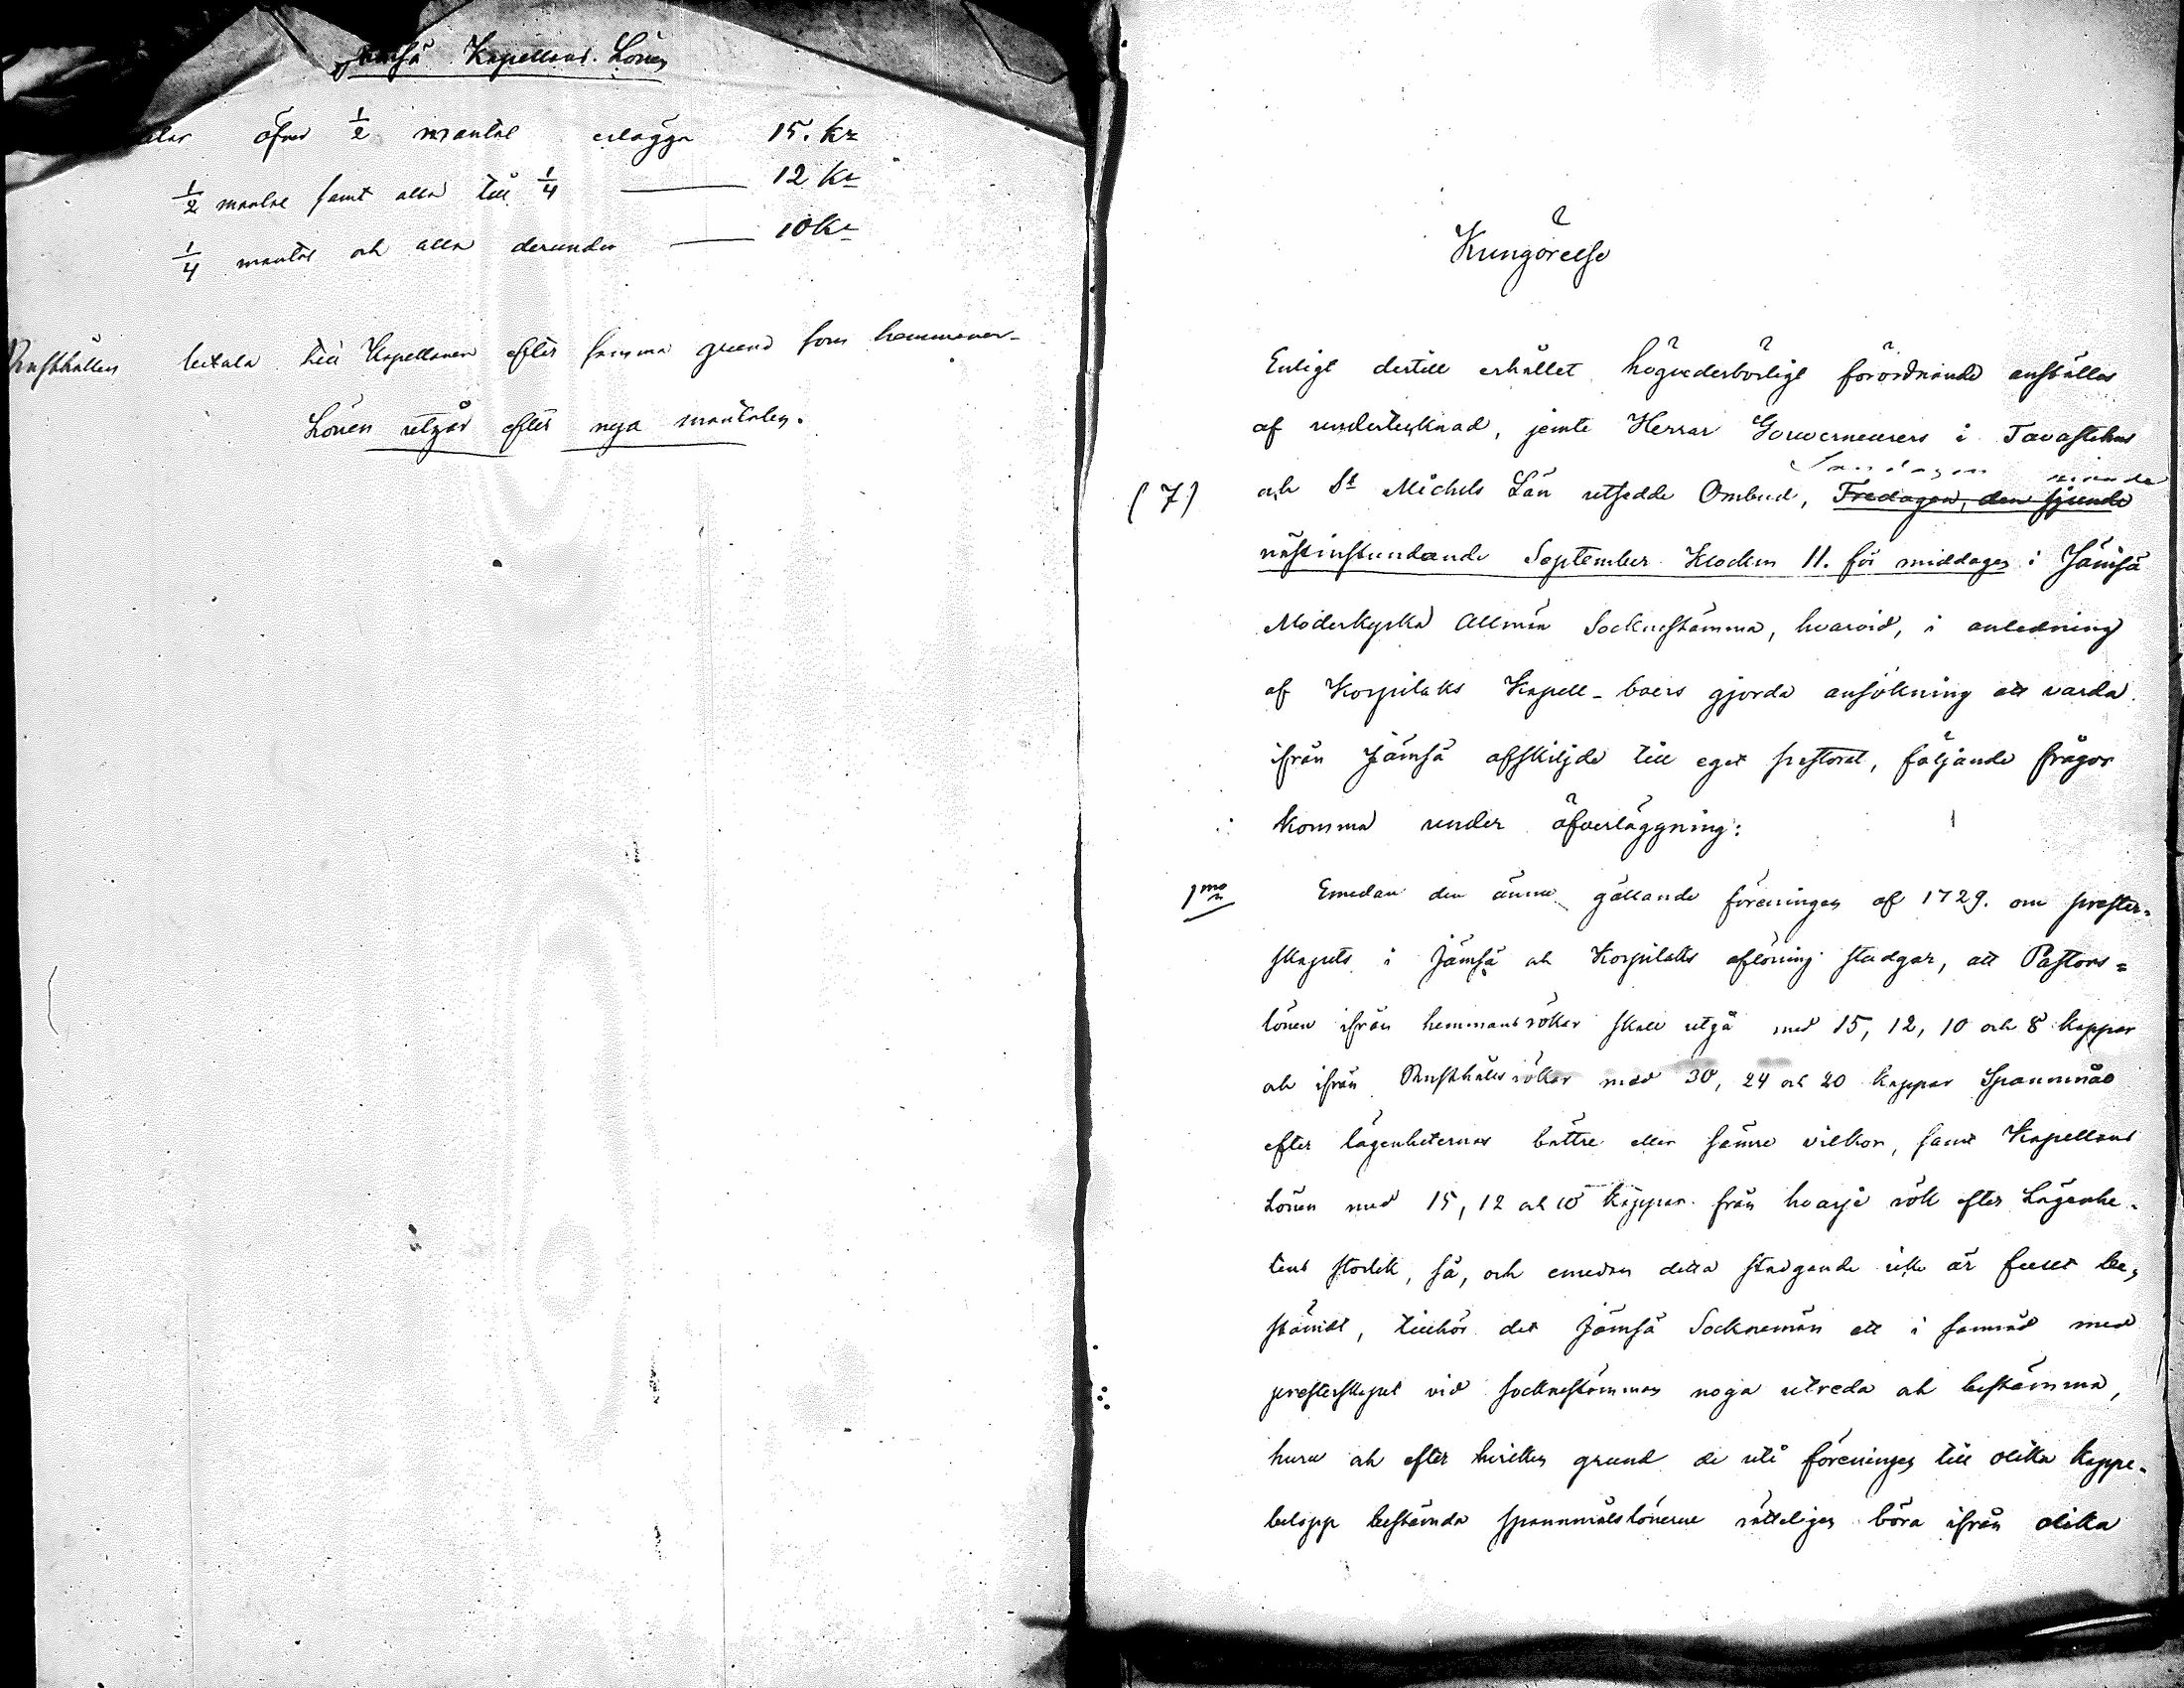 Jämsä Kapellans Lönen
öfver 1/2 mantal erlägga 15. kr
1/2 mantal samt alla till 1/4 — 12 Kr
1/4 mantal och alla derunder — 10 Kr
Rusthållen betala till Kapellanen efter samma grund som hemmanen.
Lönen utgår efter nya mantalen.
Kungörelse
Enligt dertill erhållet högvederbörligt förordnande anställes
af undertecknad, jemte Herrar Gouverneurers i Tavastehus
Sundagen nionde
(7) och St Michels Län utsedde Ombud, Fredagen, den sjunde
nästinstundande September Klockan 11. för middagen i Jämsä
Moderkyrka Allmän Socknestämma, hvarvid, i anledning
af Korpilaks Kapell-boers gjorda ansökning att varda
ifrån Jämsä afskiljde till eget pastorat, följande frågor
komma under öfverläggning:
1mo Emedan den ännu gällande föreningen af 1729. om prester-
skapets i Jämsä och Korpilaks aflöning stadgar, att Pastors=
lönen ifrån hemmansrökar skall utgå med 15, 12, 10 och 8 kappar
och ifrån Rusthållsrökar med 30, 24 och 20 kappar Spannmål
efter lägenheternas bättre eller sämre vilkor, samt Kapellans
Lönen med 15, 12 och 10 kappar från hvarje rök efter Lägenhe-
tens storlek, så, och emedan detta stadgande icke är fullt be-
stämdt, tillhör det Jämsä Socknemän att i samråd med
presterskapet vid socknestämman noga utreda och bestämma,
huru och efter hvilken grund de uti föreningen till olika kappe-
belopp bestämda spannmålslönerne rätteligen böra ifrån olika